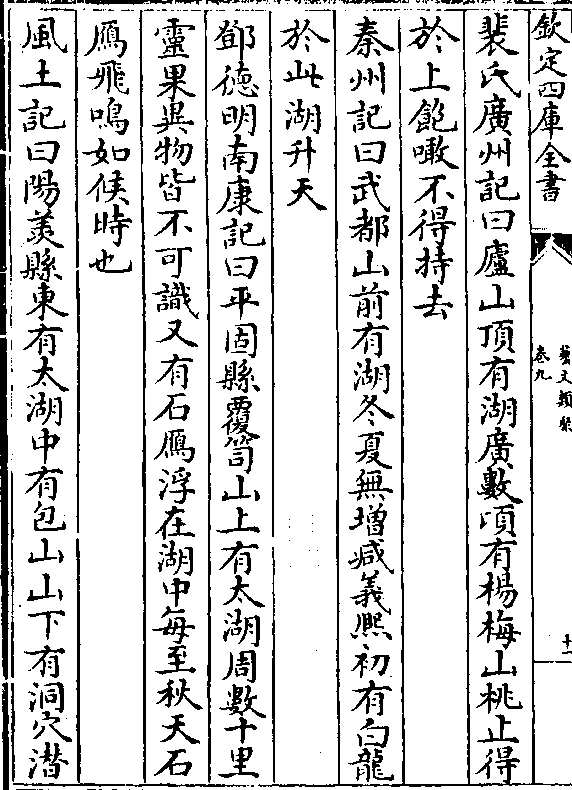 欽定四庫全書
藝文類聚
卷九
十一
裴氏廣州記曰廬山頂有湖廣數頃有楊梅山桃止得
於上飽噉不得持去
秦州記曰武都山前有湖冬夏無增减義熙初有白龍
於此湖升天
鄧德明南康記曰平固縣覆笥山上有太湖周數十里
靈果異物皆不可識又有石鴈浮在湖中每至秋天石
鴈飛鳴如候時也
風土記曰陽羡縣東有太湖中有包山山下有洞穴潛